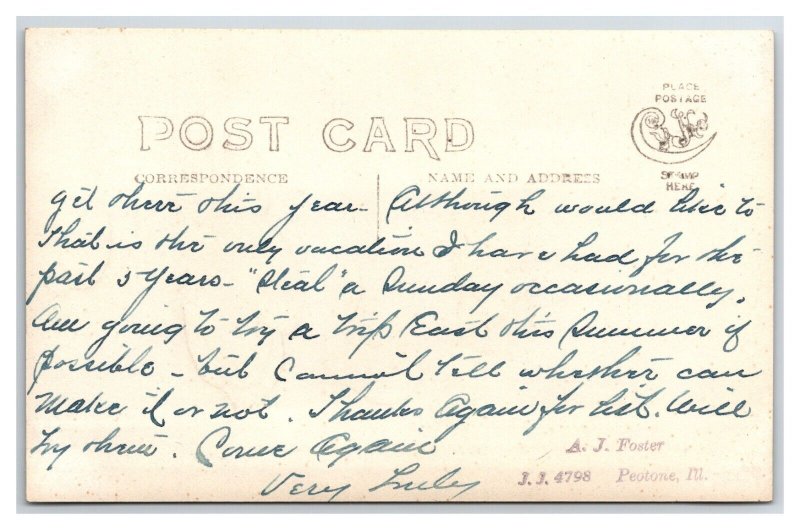 PLACE
POSTAGE
STAMP
HERE
POST CARD
CORRESPONDENCE
NAME AND ADDRESS
get there this year - Although would like to
That is the only vacation I have had for the
past 5 years - "Steal" a Sunday occasionally,
Am going to try a trip East this Summer if
possible - but Cannot tell whether can
Make it or not. Thanks Again for list. Will
try them. Come Again
Very Truly
A. J. Foster
J.J. 4798 Peotone, Ill.